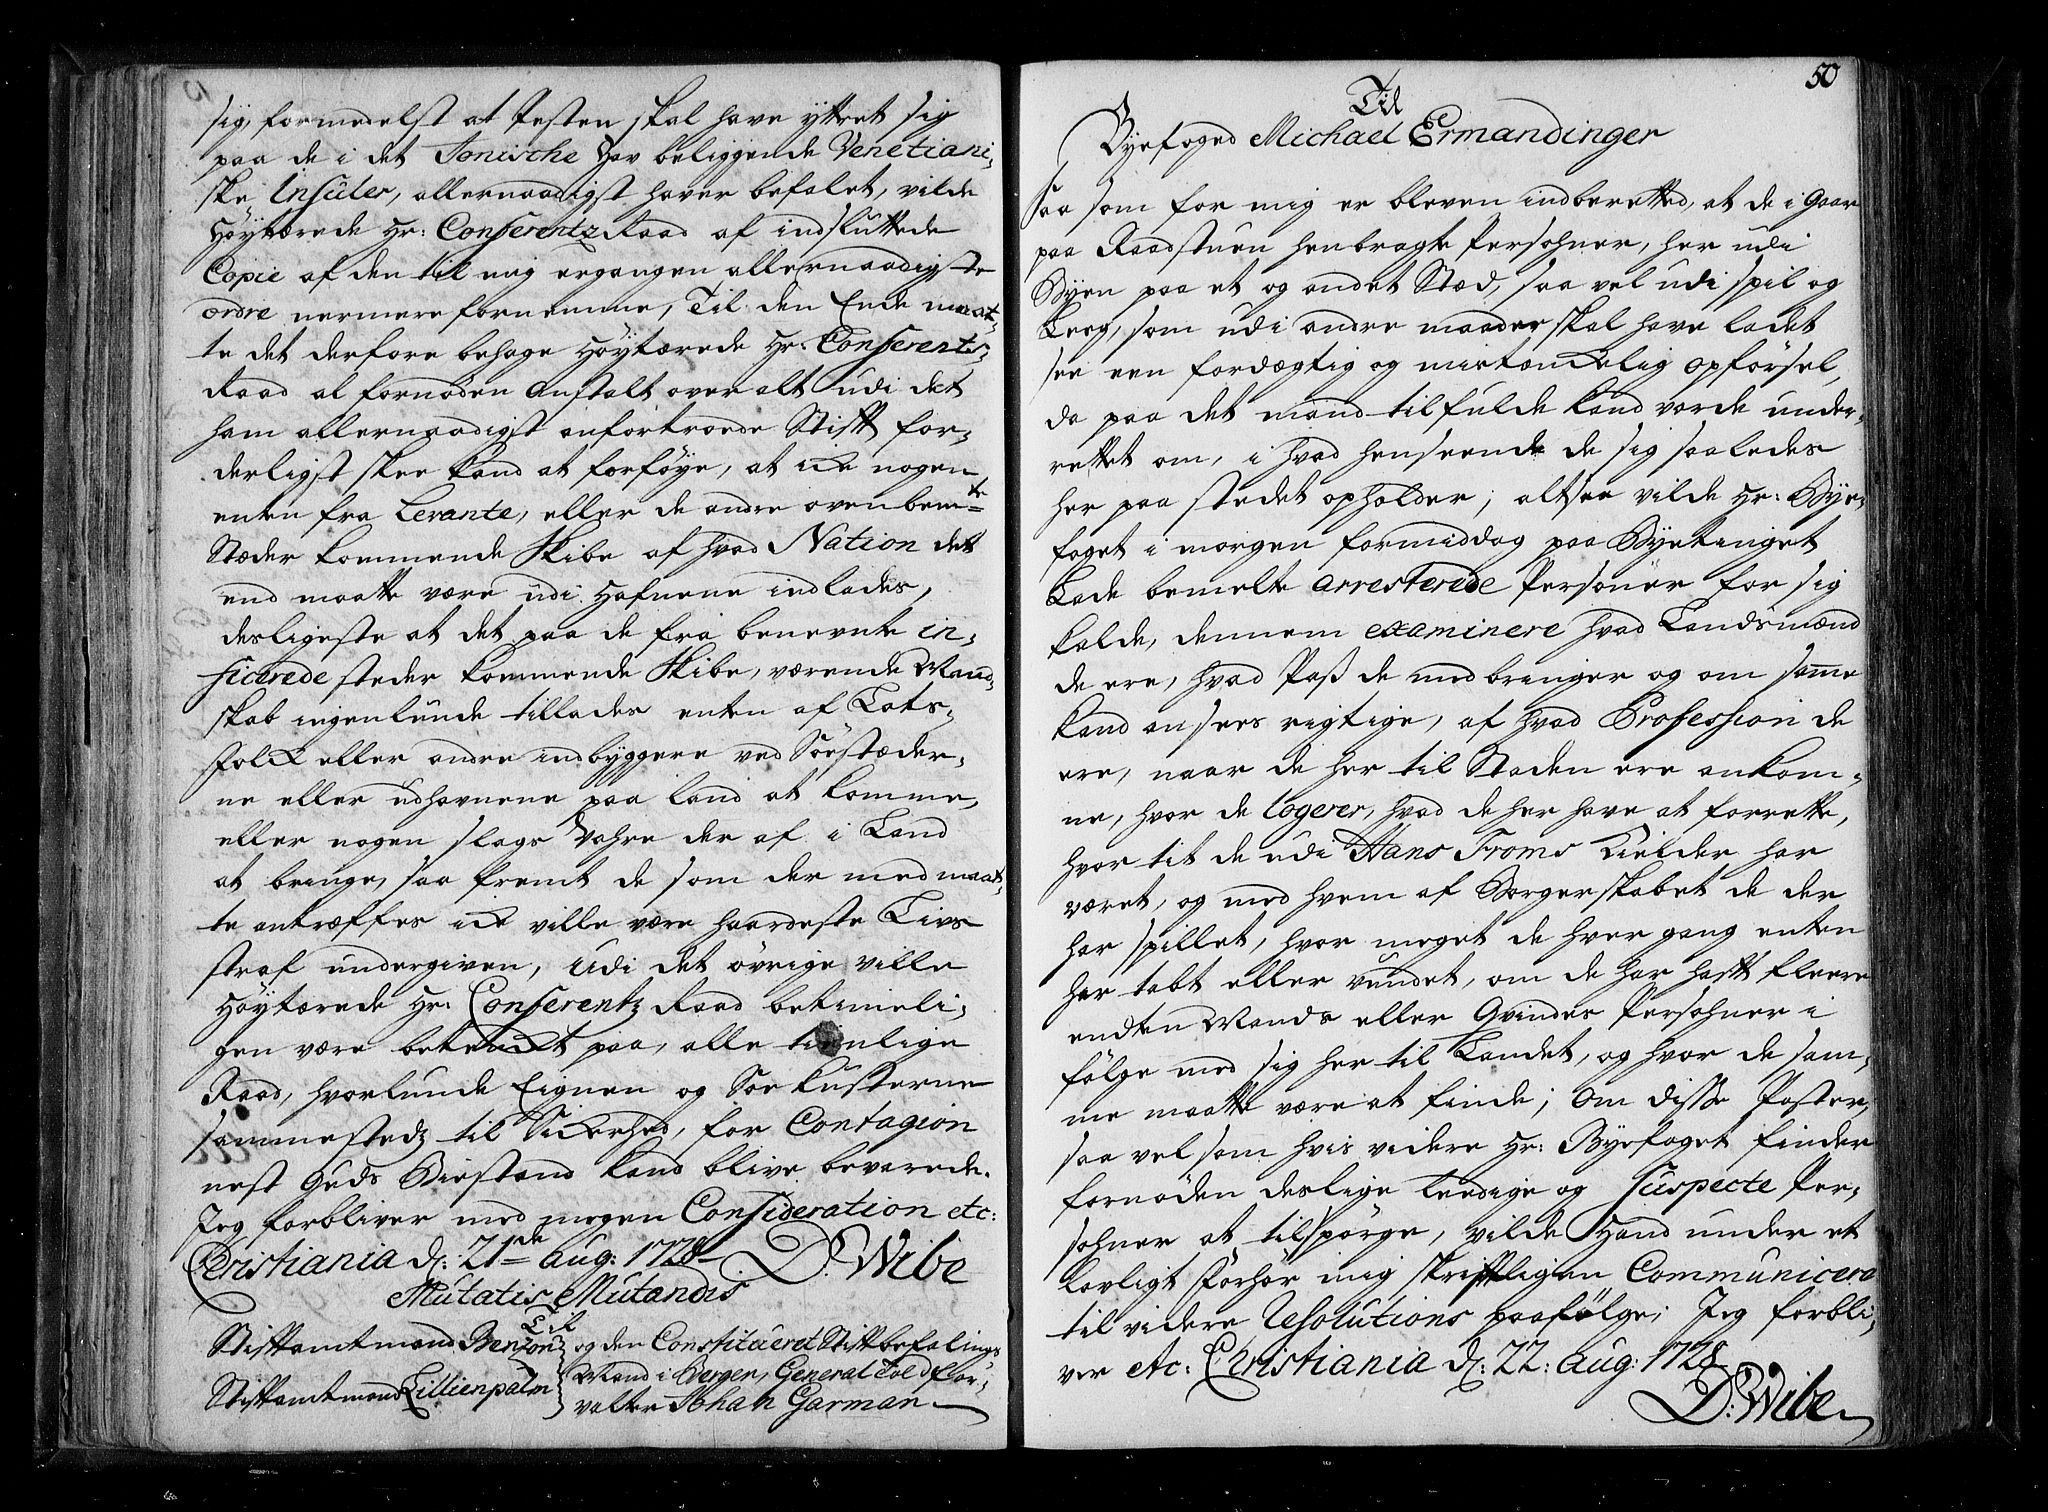 sig, formedelst at Pesten skal have yttret sig
paa de i det Jonische Hav beliggende Venetiani,
ske Insuler, allernaadigst haver befalet, vilde
Höytærede Hr: Conferentz Raad af indsluttede
Copie af den til mig ergangen allernaadigste
ordre nermere fornemme, Til den Ende maat,
te det derfore behage Höytærede Hr: Conferentz
Raad al fornöden Anstalt over alt udi det
ham allernaadigst anfortroede Stift for,
derligst skee kand at forföye, at icke nogen
enten fra Levante, eller de andre ovenbemte
Stæder kommende Skibe af hvad Nation det
end maatte være udi Hafnene indlades,
desligeste at det paa de fra benevnte in,
ficerede steder kommende Skibe, værende Mand,
skab ingenlunde tillades enten af Lots,
folck eller andre indbyggere ved Söestæder,
ne eller udhavnene paa land at komme,
eller nogen slags Vahre der af i Land
at bringe, saa fremt de som der med maat,
te antræffes icke ville være haardeste Livs
straf undergiven, Udi det övrige ville
Höytærede Hr: Conferentz Raad betimeli,
gen være betenckt paa, alle tienlige
Raad, hvorlunde Eignen og Söe Kusterne
sammestedz til Sickerhed, for Contagion
nest Guds Biestand kand blive bevarede.
Jeg forbliver med megen Consideration etc:
Christiania d: 21de aug: 1728 D: Wibe
Mutatis Mutandis
Til
Stiftamtmand Benzon og den Constitueret Stiftbefalings
Mand i Bergen, General Told for,
Stiftamtmand Lillienpalm valter Johan Garman
50
Til
Byefoged Michael Ermandinger
Saa som for mig er bleven indberetted, at de i Gaar
paa Raadstuen henbragte Persohner, her udi
Byen paa et og andet Stæd, saa vel udi spil og
Leeg, som udi andre maader skal have ladet
see een fordægtig og mistænckelig opförsel,
da paa det mand tilfulde kand vorde under,
rettet om, i hvad henseende de sig saaledes
her paa stedet opholder; altsaa vilde Hr: Bye,
foget i morgen formiddag paa Byetinget
Lade bemelte arresterede Personer for sig
kalde, dennem examinere hvad Landsmænd
de ere, hvad Pass de medbringer og om samme
kand ansees rigtige, af hvad Profession de
ere, naar de her til Staden ere ankom,
ne, hvor de logerer, hvad de her have at forrette,
hvor tit de udi Hans Froms Kielder har
været, og med hvem af Borgerskabet de der
har spillet, hvor meget de hver gang enten
har tabt eller vundet, om de har haft fleere
endten Mands eller Qvindes Persohner i
fölge med sig her til Landet, og hvor de sam,
me maatte være at finde; Om disse Poster,
saa vel som hvis videre Hr: Byefoget finder
fornöden deslige leedige og Suspecte Per,
sohner at tilspörge, vilde Hand under et
Lovligt Forhör mig skriftligen Communicere
til videre Resolutions paafölge; Jeg forbli,
ver etc: Christiania d: 22: aug: 1728
D: Wibe